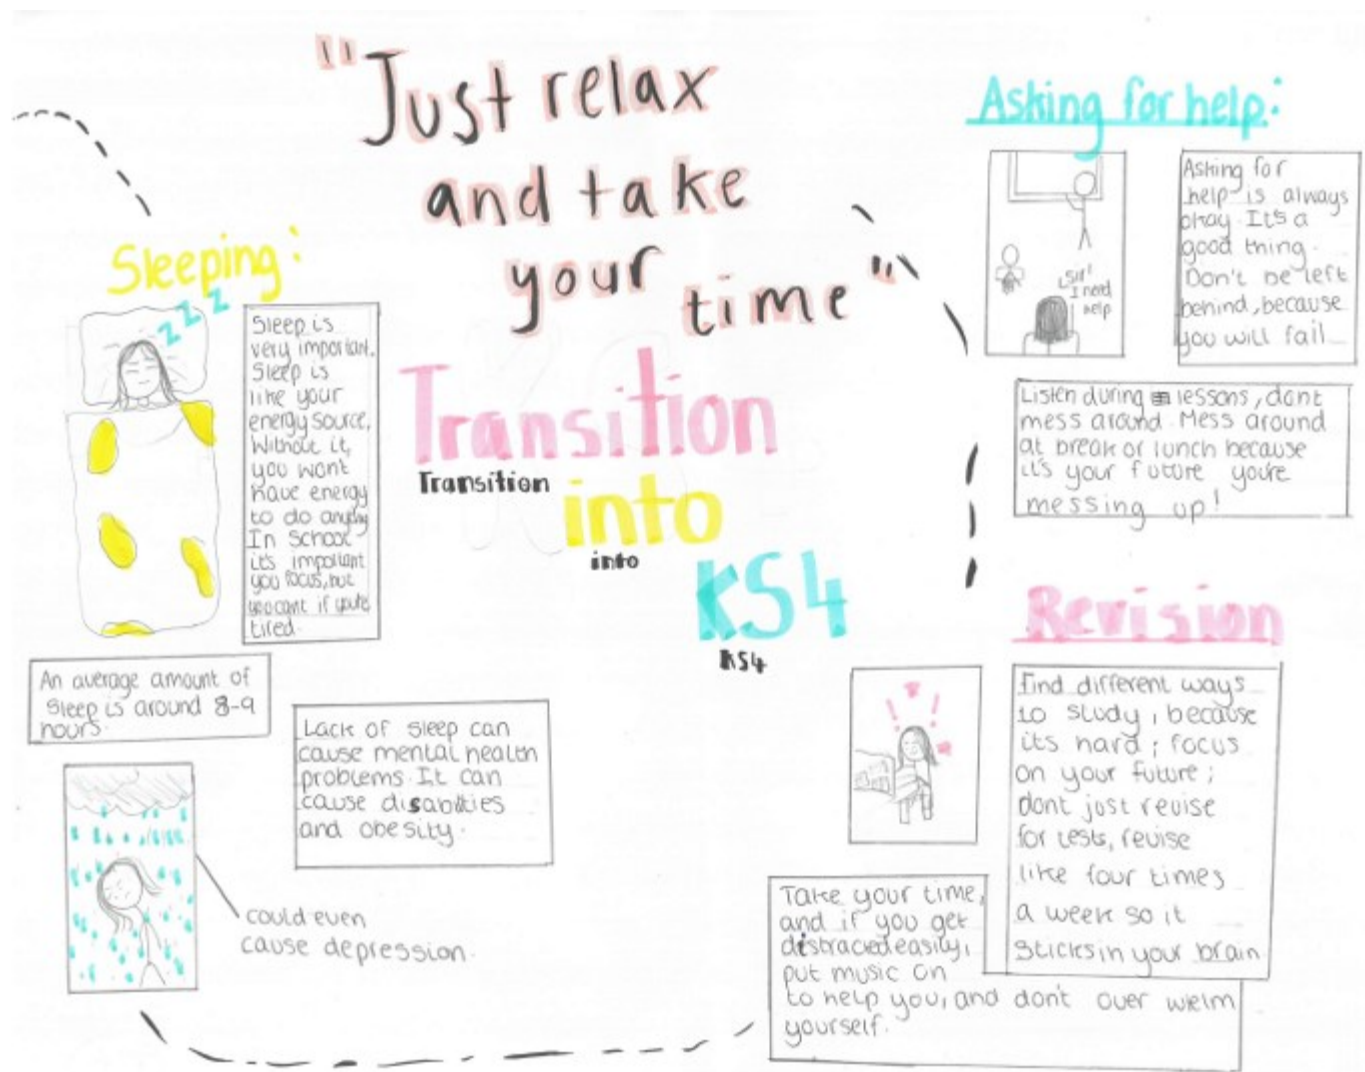 "Just relax
and take
your
time"
Sleeping:
z z z
Sleep is
very important.
Sleep is
like your
energy source.
Without it,
you wont
have energy
to do anythg
In School
it's important
you focus, but
you cant if you're
tired.
An average amount of
Sleep is around 8-9
hours.
Lack of sleep can
cause mental health
problems. It can
cause disabilties
and obesity.
could even
cause depression.
Transition
Transition
into
into
KS4
KS4
Asking for help:
Sir!
I need
help
Asking for
help is always
okay. It's a
good thing.
Don't be left
behind, because
you will fail
Listen during lessons, dont
mess around. Mess around
at break or lunch because
it's your future you're
messing up!
Revision
find different ways
to study, because
its hard; focus
on your future;
dont just revise
for tests, revise
like four times
a week so it
sticks in your brain
Take your time,
and if you get
distraced easily,
put music on
to help you, and don't over welm
yourself.